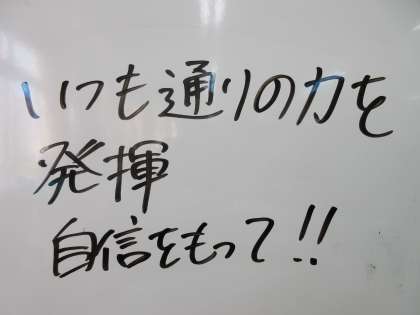 いつも通りの力を
発揮
自信をもって!!